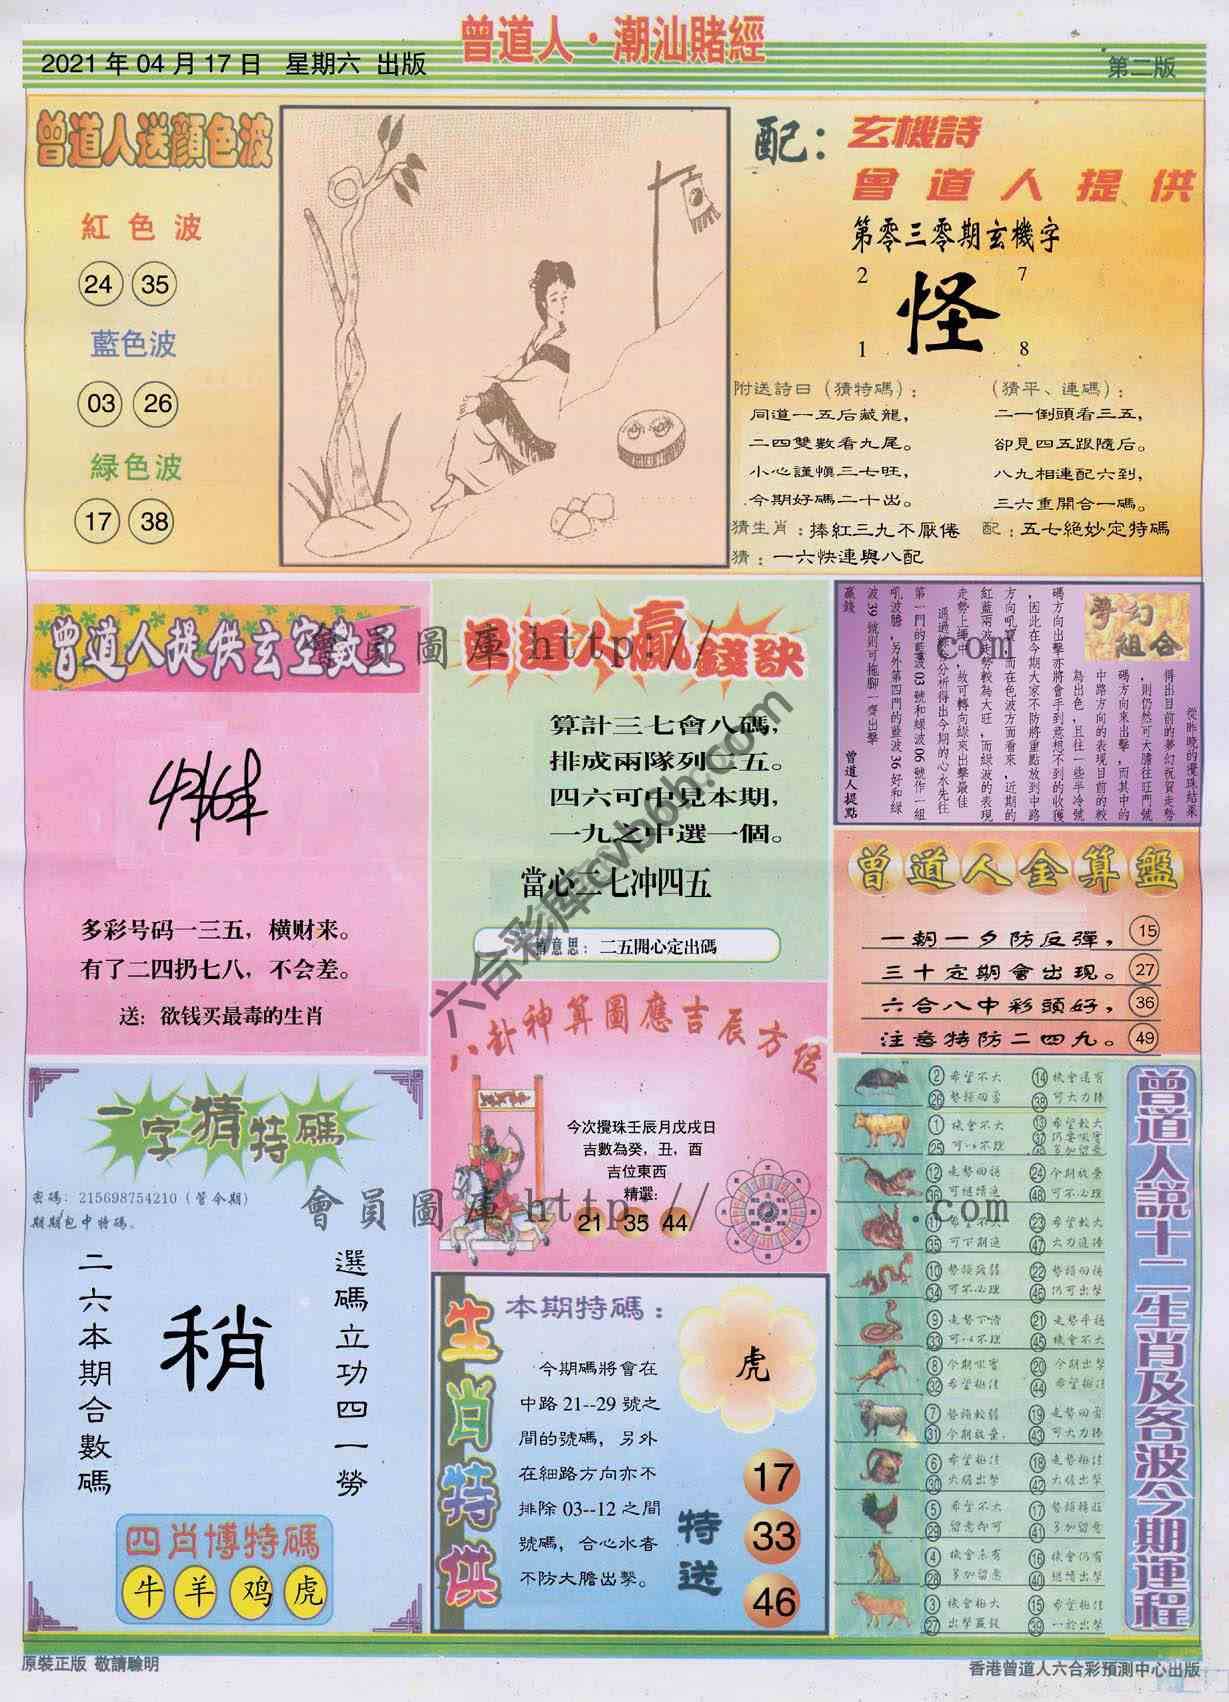 2021 年 04 月 17 日 星期六 出版
曾道人·潮汕賭經
第二版
曾道人送顏色波
紅色波
24 35
藍色波
03 26
緑色波
17 38
配：玄機詩
曾道人提供
第零三零期玄機字
2 7
怪
1 8
附送詩曰（猜特碼）：
同道一五后藏龍，
二四雙數看九尾。
小心謹慎三七旺，
今期好碼二十出。
（猜平、連碼）：
二一倒頭看三五，
卻見四五跟隨后。
八九相連配六到，
三六重開合一碼。
猜生肖：捧紅三九不厭倦
配：五七絕妙定特碼
猜：一六快連與八配
曾道人提供玄空數
多彩号码一三五，横财来。
有了二四扔七八，不会差。
送：欲钱买最毒的生肖
曾道人贏錢訣
算計三七會八碼，
排成兩隊列二五。
四六可中見本期，
一九之中選一個。
當心二七冲四五
二五開心定出碼
夢幻組合
從昨晚的攪珠結果
得出目前的夢幻祝賀走勢
，則仍然可大膽往旺門號
碼方向來出擊，而其中的
中路方向的表現目前的較
為出色，且往一些半冷號
碼方向出擊亦將會手到意想不到的收獲
，因此在今期大家不防將重點放到中路
方向吼實，而在色波方面看來，近期的
紅藍兩波走勢較為大旺，而綠波的表現
走勢上繩中，故可轉向綠來出擊最佳
通過綜合分析得出今期的心水先往
第一門的藍波 03 號和绿波 06 號作一組
吼波膽，另外第四門的藍波 36 好和綠
波 39 號則可拖腳一齊出擊
贏錢
曾道人提點
曾道人金算盤
一朝一夕防反彈，15
三十定期會出現。27
六合八中彩頭好，36
注意特防二四九。49
八卦神算圖應吉辰方位
今次攪珠壬辰月戊戌日
吉數為癸，丑，酉
吉位東西
精選：
21 35 44
一字猜特碼
密碼：215698754210（管令期）
期期包中特碼。
選碼立功四一勞
稍
二六本期合數碼
四肖博特碼
牛 羊 鸡 虎
生肖特供
本期特碼：
今期碼將會在
中路 21--29 號之
間的號碼，另外
在細路方向亦不
排除 03--12 之間
號碼，合心水者
不防大膽出擊。
虎
特送
17
33
46
曾道人說十二生肖及各波今期運程
2 希望不大
14 機會還有
26
38 可大力捧
1 機會不大
13 希望較大
25 可以不理
12
24 今期放棄
48 可不必理
11
23 希望較大
35
47
10
22
34 可不必理
46 仍可出擊
9
21
33 可以不理
45 機會不大
8
20 今期出擊
32
44
7
19
31
43 可大力捧
6
18
30
42
5 希望不大
17
29
41 多加留意
4
16 機會仍有
28 多加留意
40 繼續出擊
3
15
27
39
原裝正版 敬請驗明
香港曾道人六合彩預測中心出版
會員圖庫 http:// .com
六合彩库cvb6h.com
會員圖庫 http:// .com